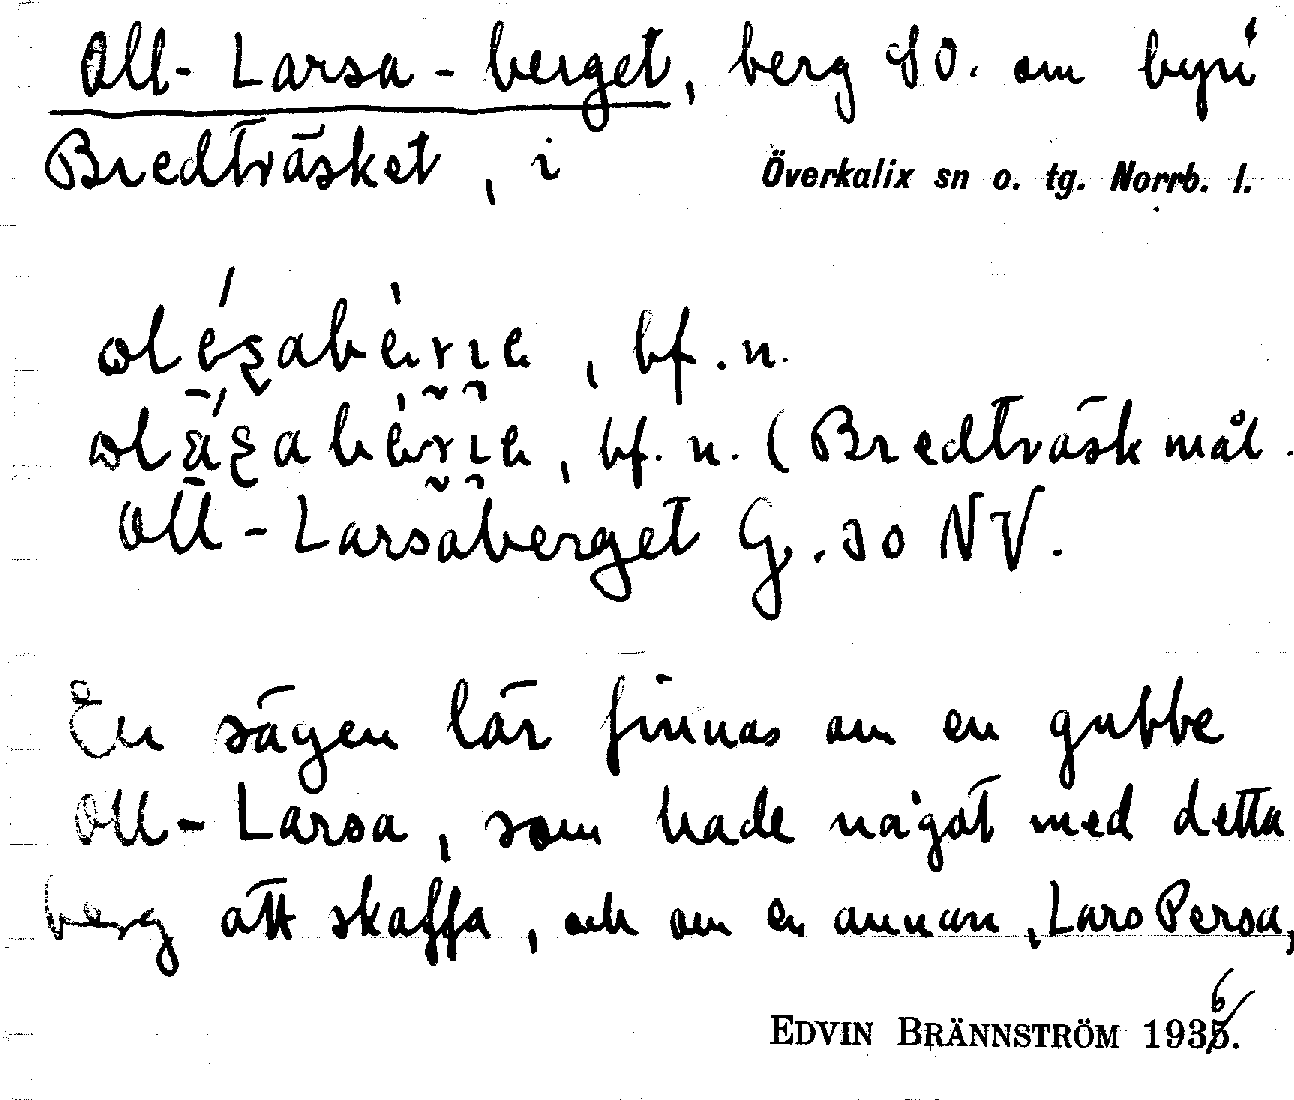 Oll-Larsa-berget, berg SO. om byn i
Bredträsket, i Överkalix sn o. tg. Norrb. l.
, bf. n.
, bf. n. (Bredträskmål.
Oll-Larsaberget G. 30 NV.
En sägen lär finnas om en gubbe
Oll-Larsa, som hade något med detta
berg att skaffa, och om en annan, Lars Persa,
EDVIN BRÄNNSTRÖM 1936.